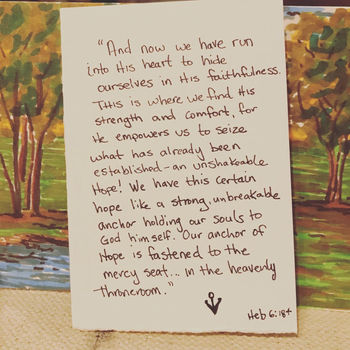 "And now we have run
into His heart to hide
ourselves in His faithfulness.
This is where we find His
strength and comfort, for
He empowers us to seize
what has already been
established-an unshakeable
Hope! We have this certain
hope like a strong, unbreakable
anchor holding our souls to
God himself. Our anchor of
Hope is fastened to the
mercy seat... in the heavenly
Throneroom."
Heb 6:18+